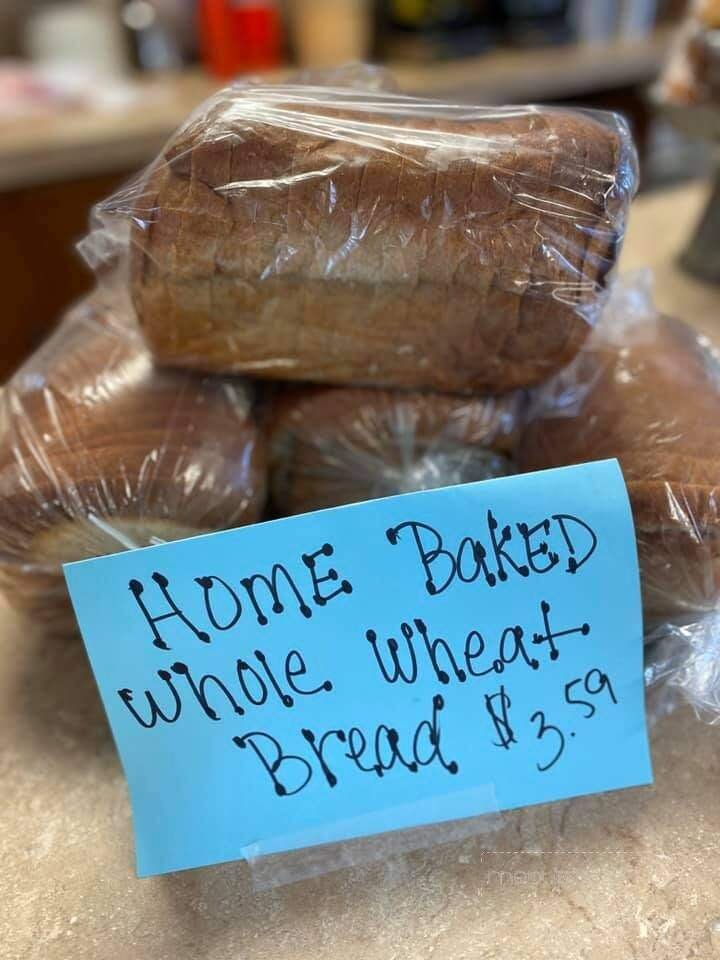 HOME BAKED
Whole Wheat
Bread $3.59